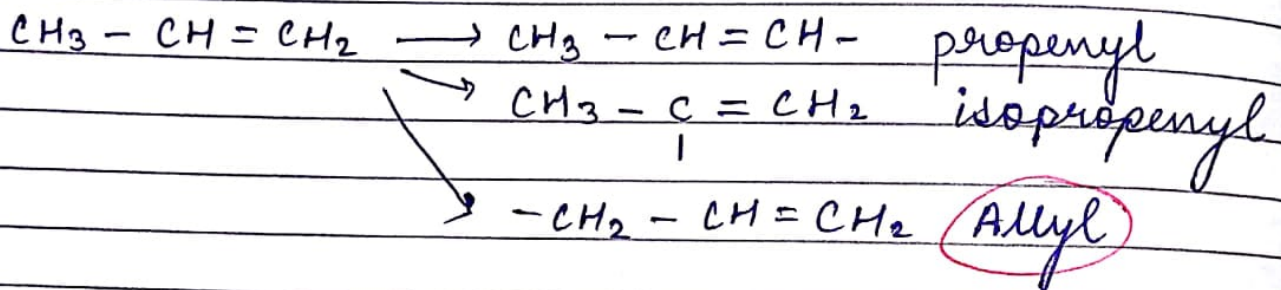 CH3 - CH = CH2 ⟶ CH3 - CH = CH - propenyl
CH3 - C = CH2 isopropenyl
|
- CH2 - CH = CH2 Allyl